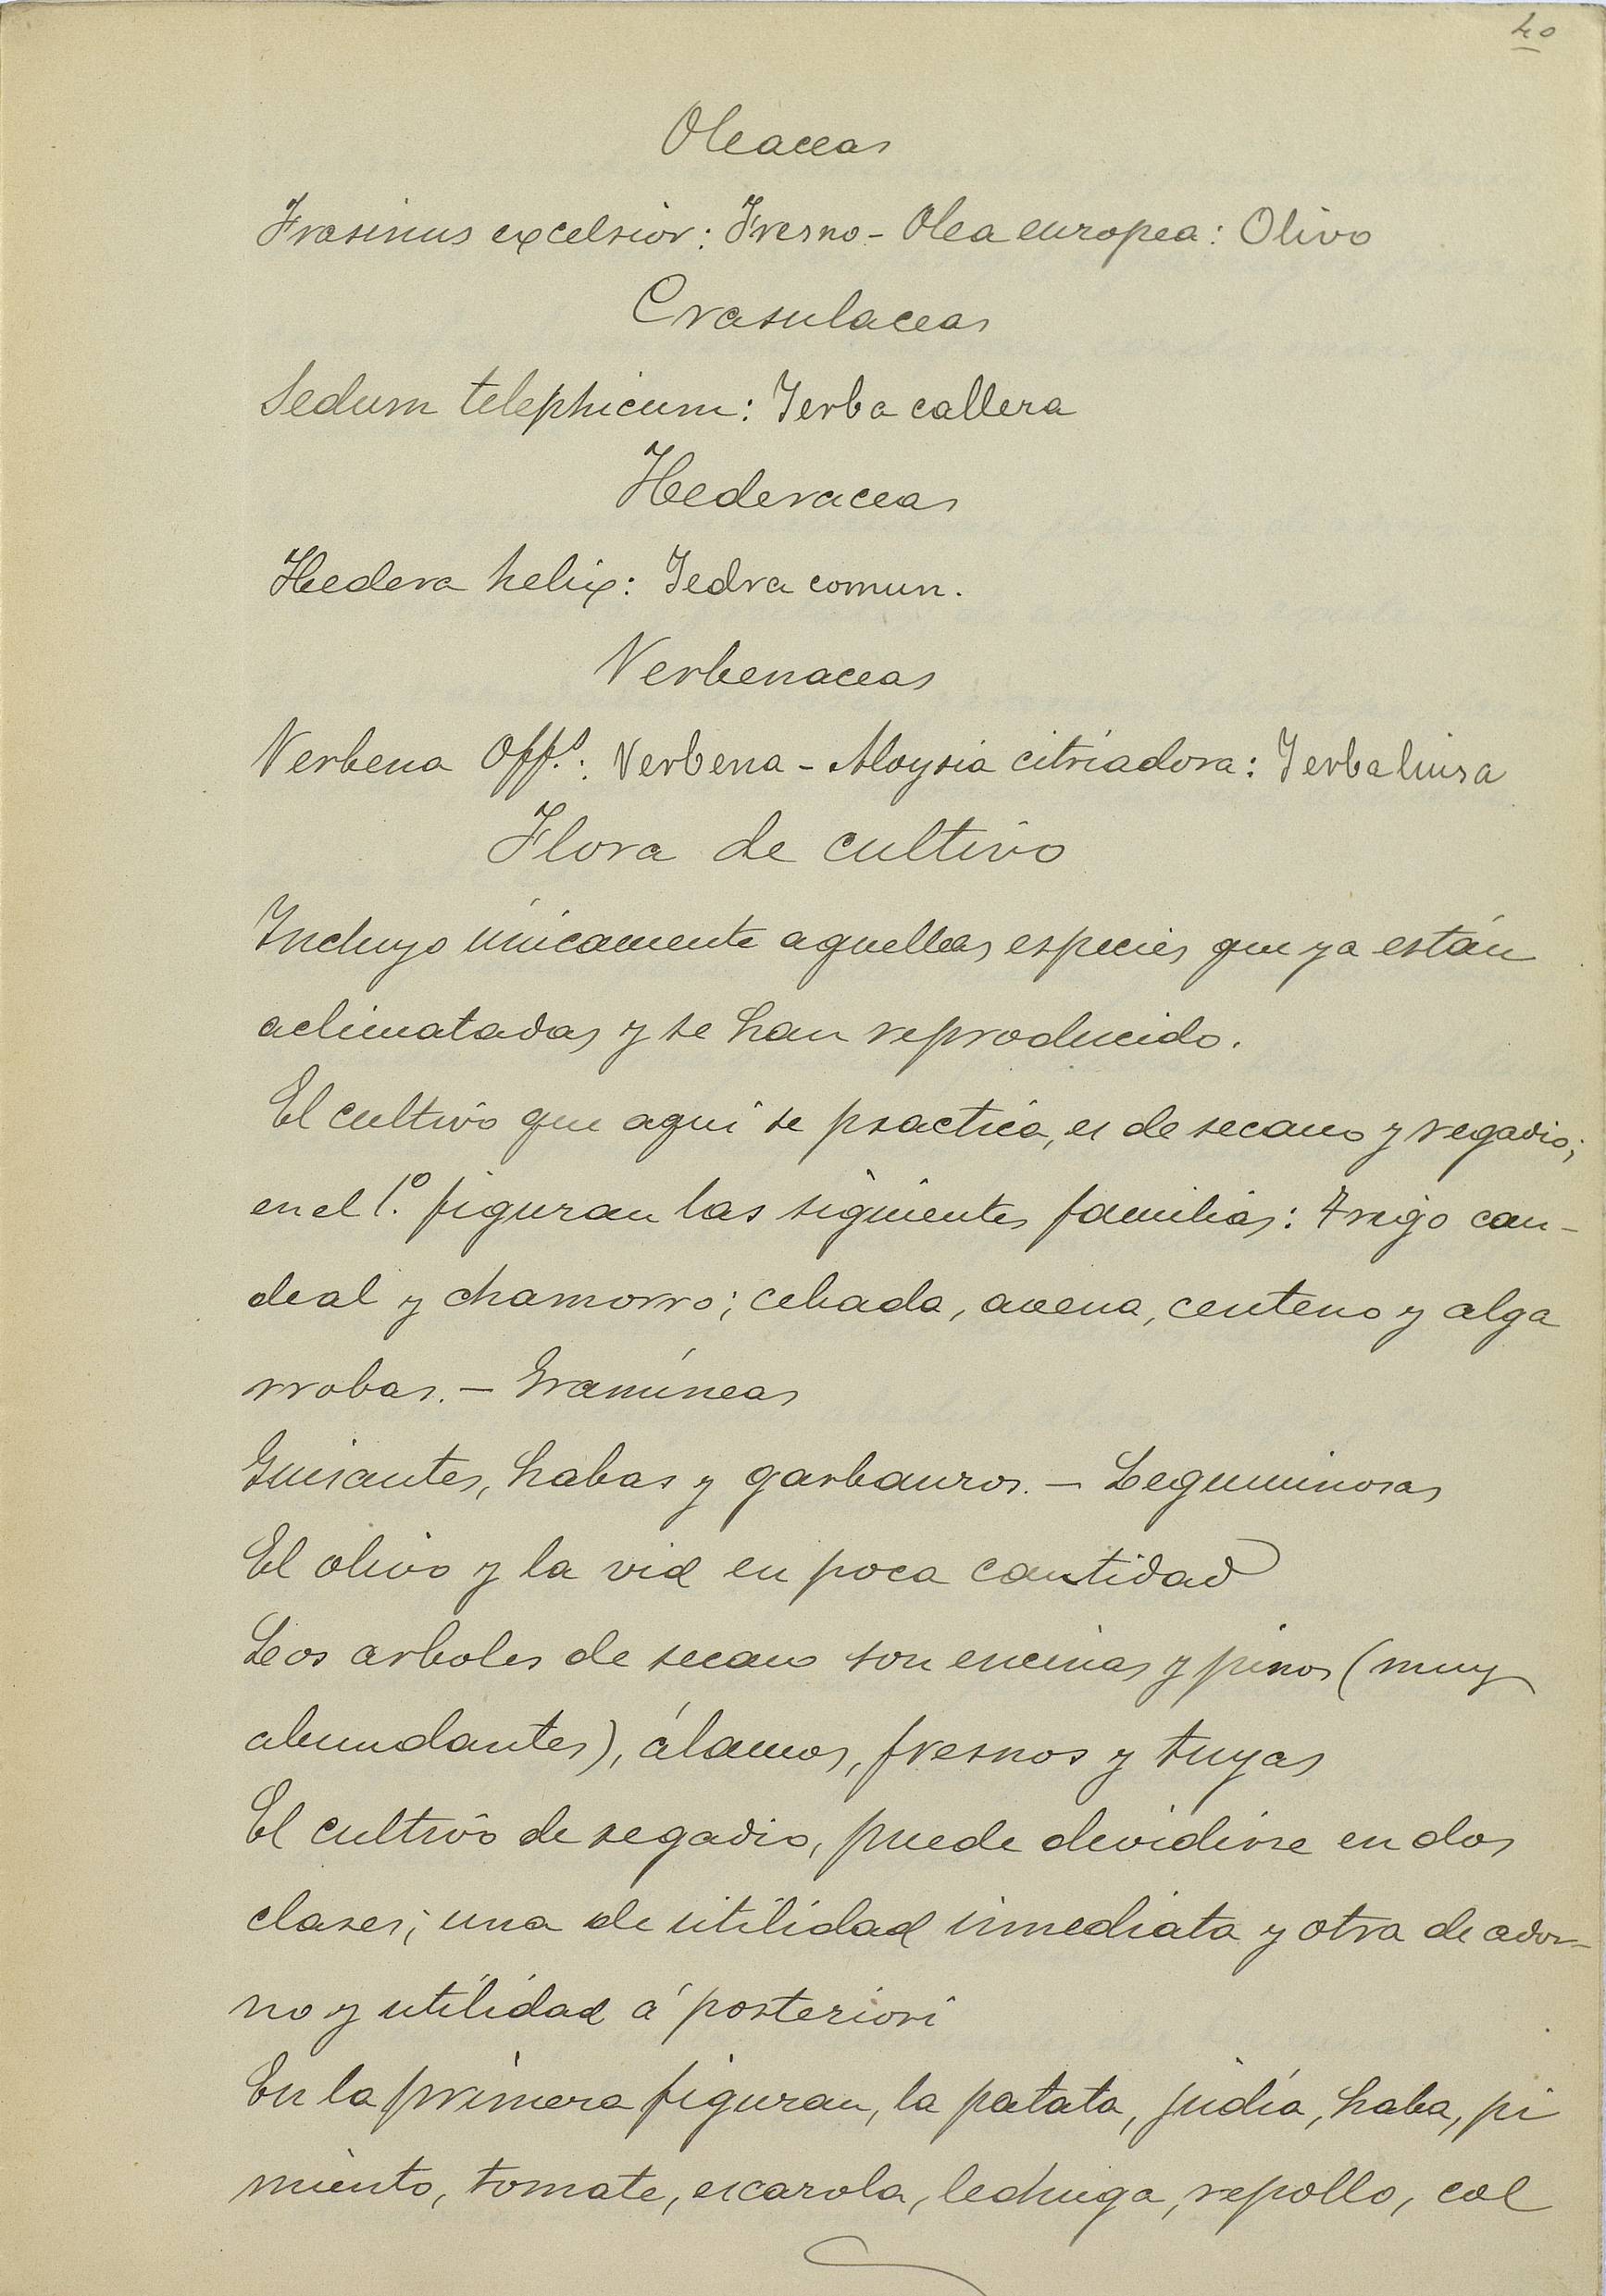 40
Oleaceas
Frasinus excelsior: Fresno - Olea europea: Olivo
Crasulaceas
Sedum telephicum: Yerba callera
Hederaceas
Hedera helix: Yedra comun.
Verbenaceas
Verbena Off.s: Verbena - Aloysia citriadora: Yerba luisa
Flora de cultivo
Incluyo únicamente aquellas especies que ya están
aclimatadas y se han reproducido.
El cultivo que aqui se practica, es de secano y regadio;
en el 1.º figuran las siguientes familias: Trigo can-
deal y chamorro; cebada, avena, centeno y alga
rrobas. - Gramíneas
Guisantes, habas y garbanzos. - Leguminosas
El olivo y la vid en poca cantidad
Los arboles de secano son encinas y pinos (muy
abundantes), álamos, fresnos y tuyas
El cultivo de regadio, puede dividirse en dos
clases; una de utilidad inmediata y otra de ador-
no y utilidad á posteriori
En la primera figuran, la patata, judía, haba, pi
miento, tomate, escarola, lechuga, repollo, col